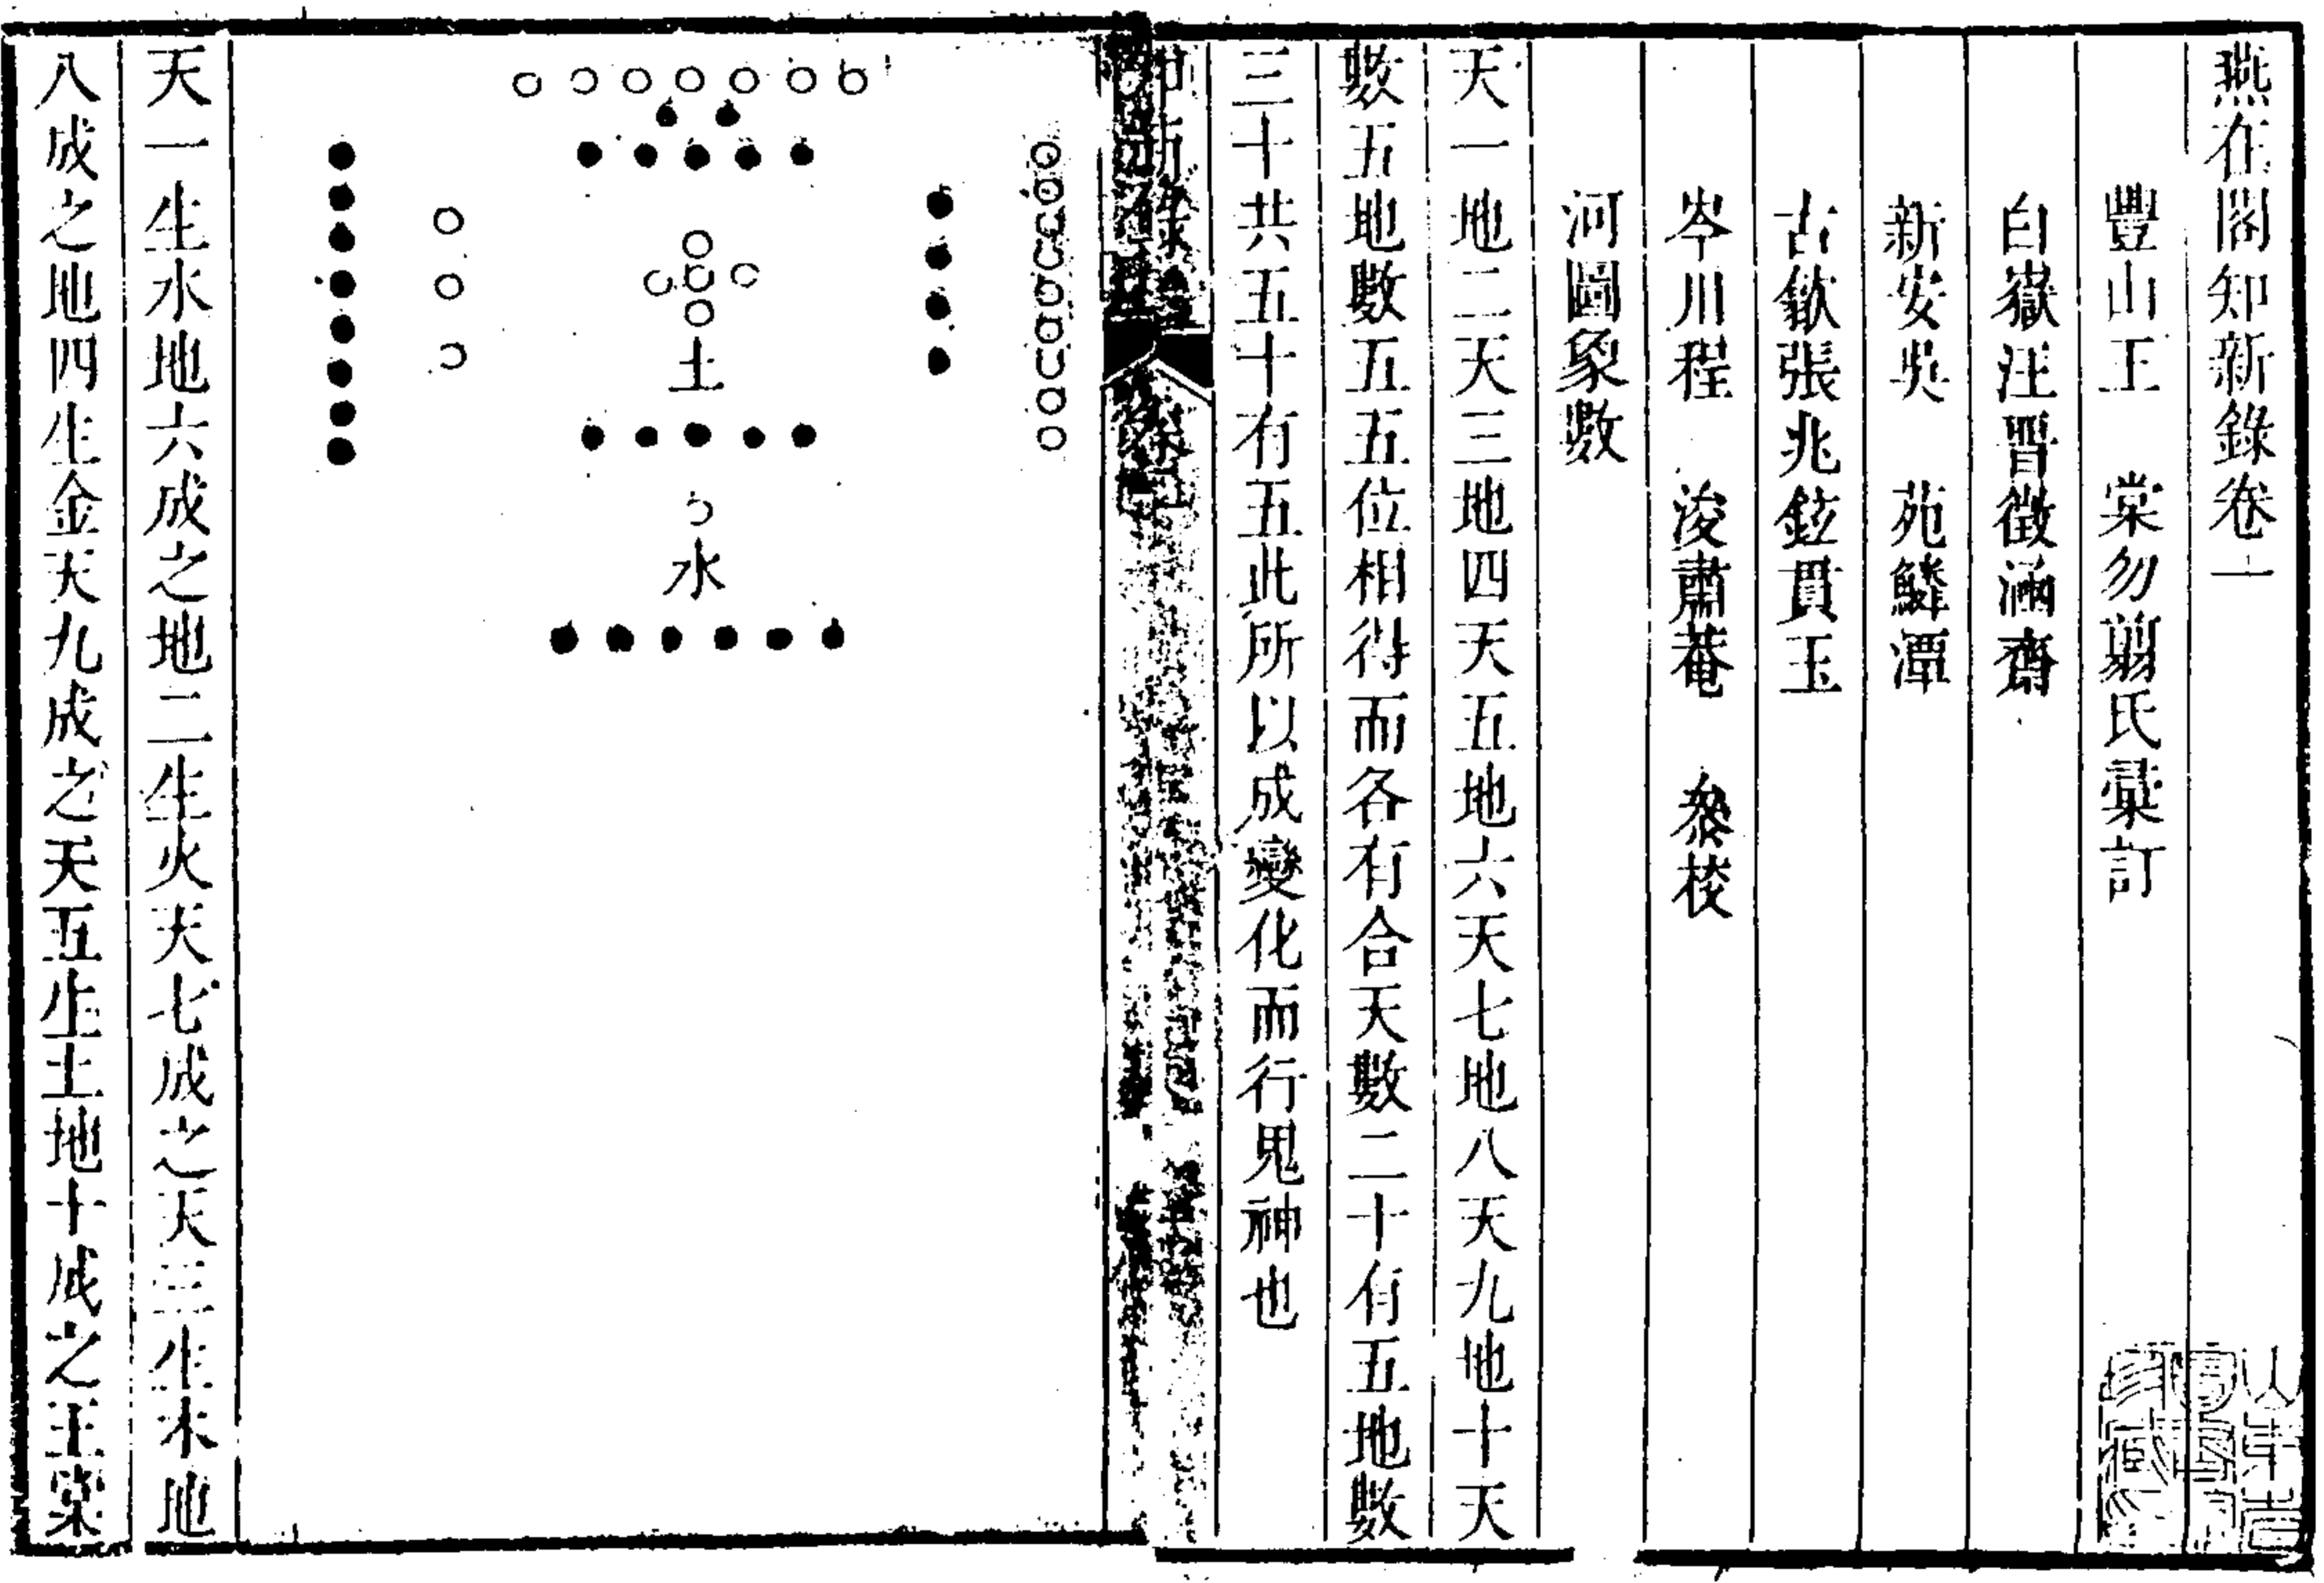 燕在閣知新錄卷一
豐山王　棠勿翦氏彙訂
白嶽汪晉徵涵齋
新安吳　苑鱗潭
古歙張兆鉉貫玉
岑川程　浚肅菴　叅校
河圖象數
天一地二天三地四天五地六天七地八天九地十天
數五地數五五位相得而各有合天數二十有五地數
三十共五十有五此所以成變化而行鬼神也
土
水
天一生水地六成之地二生火天七成之天三生木地
八成之地四生金天九成之天五生土地十成之王棠